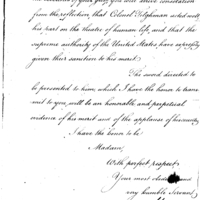 from the reflection, that Colonel Tilghman acted well
his part on the theatre of human life, and that the
supreme authority of the United States have expressly
given their sanction to his merit.
The sword directed to
be presented to him, which I have the honor to trans-
mit to you, will be an honorable and perpetual
evidence of his merit and of the applause of his country.
I have the honor to be
Madam,
With perfect respect
Your most obedient and
very humble Servant